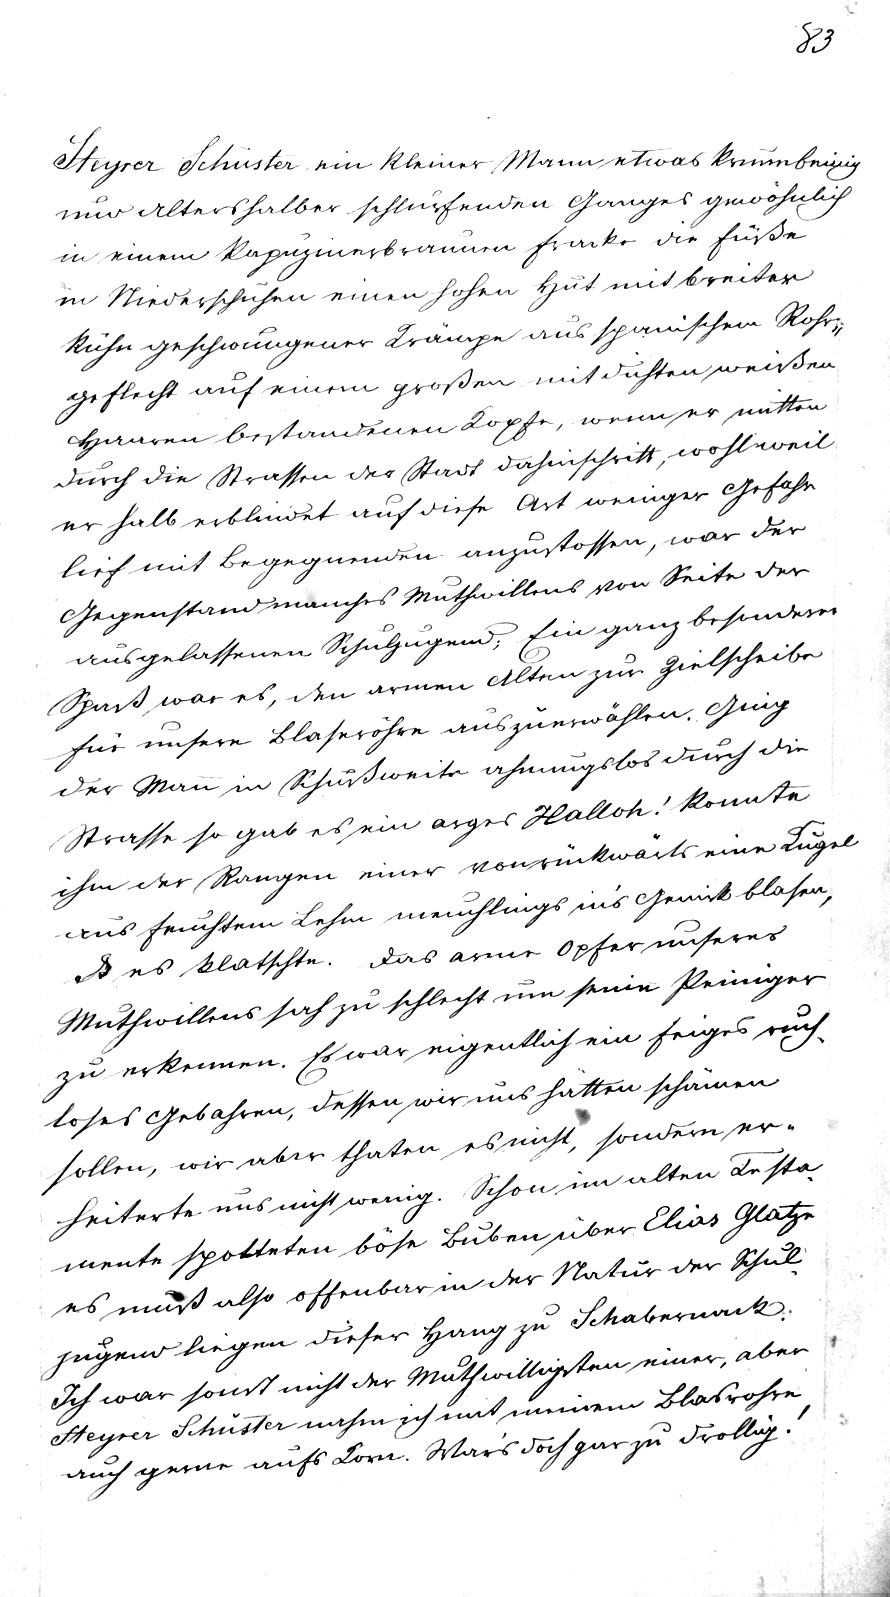 83
Steyrer Schuster ein kleiner Mann etwas krumbeinig
und altershalber schlurfenden Ganges gewöhnlich
in einem kapuzinerbraunen Fracke die Füße
in Niederschuhen einen hohen Hut mit breiter
kühn geschwungener Krämpe aus spanischem Rohr=
geflecht auf einem großen mit dichten weißen
Haaren bestandenen Kopfe, wenn er mitten
durch die Strassen der Stadt dahinschritt, wohl weil
er halb erblindet auf diese Art weniger Gefahr
lief mit Begegnenden anzustossen, war der
Gegenstand manches Muthwillens von Seite der
ausgelassenen Schuljugend; Ein ganz besonderer
Spaß war es, den armen Alten zur Zielscheibe
für unsere Blaseröhre auszuerwählen. Ging
der Mañ in Schußweite ahnungslos durch die
Strasse so gab es ein arges Halloh! konnte
ihm der Rangen einer von rückwärts eine Kugel
aus feuchtem Lehm meuchlings in's Genick blasen,
daß es klatschte. Das arme Opfer unseres
Muthwillens sah zu schlecht um seine Peiniger
zu erkennen. Es war eigentlich ein feiges ruch-
loses Gebahren, dessen wir uns hätten schämen
sollen, wir aber thaten es nicht, sondern er-
heiterte uns nicht wenig. Schon im alten Testa-
mente spotteten böse Buben über Elias Glatze
es muß also offenbar in der Natur der Schul-
jugend liegen dieser Hang zu Schabernack.
Ich war sonst nicht der Muthwilligsten einer, aber
Steyrer Schuster nahm ich mit meinem Blasrohre
auch gerne aufs Korn. War's doch gar zu drollig!